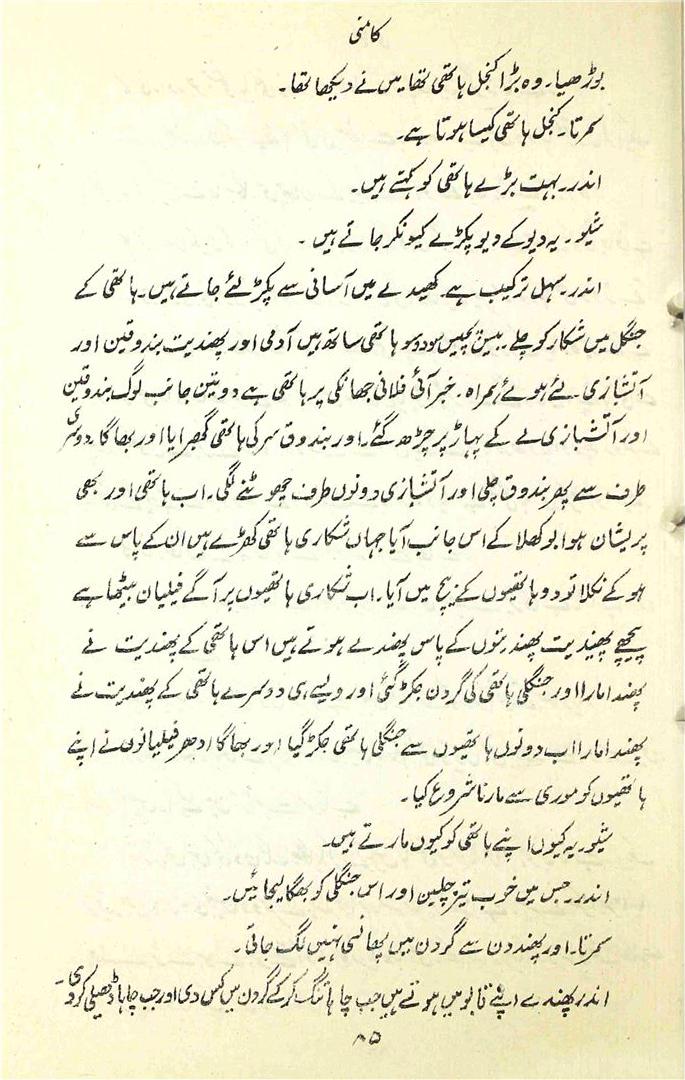 کامنی
بوڑھیا۔ وہ بڑا کنجل ہاتھی تھا میں نے دیکھا تھا۔
سمرتا۔ کنجل ہاتھی کیسا ہوتا ہے۔
اندر۔ بہت بڑے ہاتھی کو کہتے ہیں۔
شیو۔ یہ دیو کے دیو پکڑے کیونکر جاتے ہیں۔
اندر۔ سہل ترکیب ہے۔ کھیدے میں آسانی سے پکڑ لئے جاتے ہیں۔ ہاتھی کے
جنگل میں شکار کو چلے۔ بیس پچیس سو دو سو ہاتھی ساتھ ہیں آدمی اور پھندیت بندوقین اور
آتشبازی لئے ہوئے ہمراہ۔ خبر آئی فلانی جھانکی پر ہاتھی ہے دو تین جانب لوگ بندوقین
اور آتشبازی لے کے پہاڑ پر چڑھ گئے۔ اور بندوق سر کی ہاتھی گھبرایا اور بھاگا۔ دوسری
طرف سے پھر بندوق چلی اور آتشبازی دونوں طرف چھوٹنے لگی۔ اب ہاتھی اور بھی
پریشان ہوا بوکھلا کے اس جانب آیا جہاں شکاری ہاتھی کھڑے ہیں ان کے پاس سے
ہو کے نکلا تو دو ہاتھیوں کے بیچ میں آیا۔ اب شکاری ہاتھیوں پر آگے فیلبان بیٹھا ہے
پیچھے پھندیت پھندیتوں کے پاس پھندے ہوتے ہیں اس ہاتھی کے پھندیت نے
پھندا مارا اور جنگلی ہاتھی کی گردن جکڑ گئی اور ویسے ہی دوسرے ہاتھی کے پھندیت نے
پھندا مارا اب دونوں ہاتھیوں سے جنگلی ہاتھی جکڑ گیا اور بھاگا ادھر فیلبانوں نے اپنے
ہاتھیوں کو موری سے مارنا شروع کیا۔
شیو۔ یہ کیوں اپنے ہاتھی کو کیوں مارتے ہیں۔
اندر۔ جس میں خوب تیز چلیں اور اس جنگلی کو بھگا لیجائیں۔
سمرتا۔ اور پھندن سے گردن میں پھانسی نہیں لگ جاتی۔
اندر۔ پھندے اپنے قابو میں ہوتے ہیں جب چاہا تنگ کر کے گردن میں کس دی اور جب چاہا ڈھیلی کر دی۔
۸۵